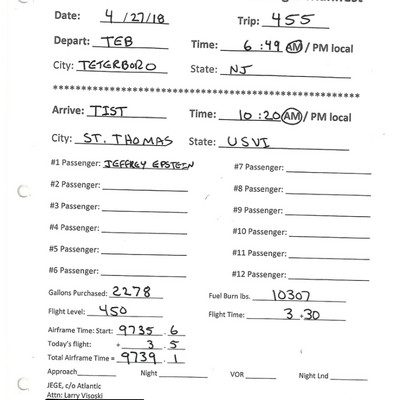 Date: 4/27/18 Trip: 455
Depart: TEB Time: 6:49 AM / PM local
City: TETERBORO State: NJ
****************************************************
Arrive: TIST Time: 10:20 AM / PM local
City: ST. THOMAS State: USVI
#1 Passenger: JEFFREY EPSTEIN #7 Passenger:
#2 Passenger: #8 Passenger:
#3 Passenger: #9 Passenger:
#4 Passenger: #10 Passenger:
#5 Passenger: #11 Passenger:
#6 Passenger: #12 Passenger:
Gallons Purchased: 2278 Fuel Burn lbs. 10307
Flight Level: 450 Flight Time: 3.30
Airframe Time: Start: 9735.6
Today's flight: + 3.5
Total Airframe Time = 9739.1
Approach Night VOR Night Lnd
JEGE, c/o Atlantic
Attn: Larry Visoski